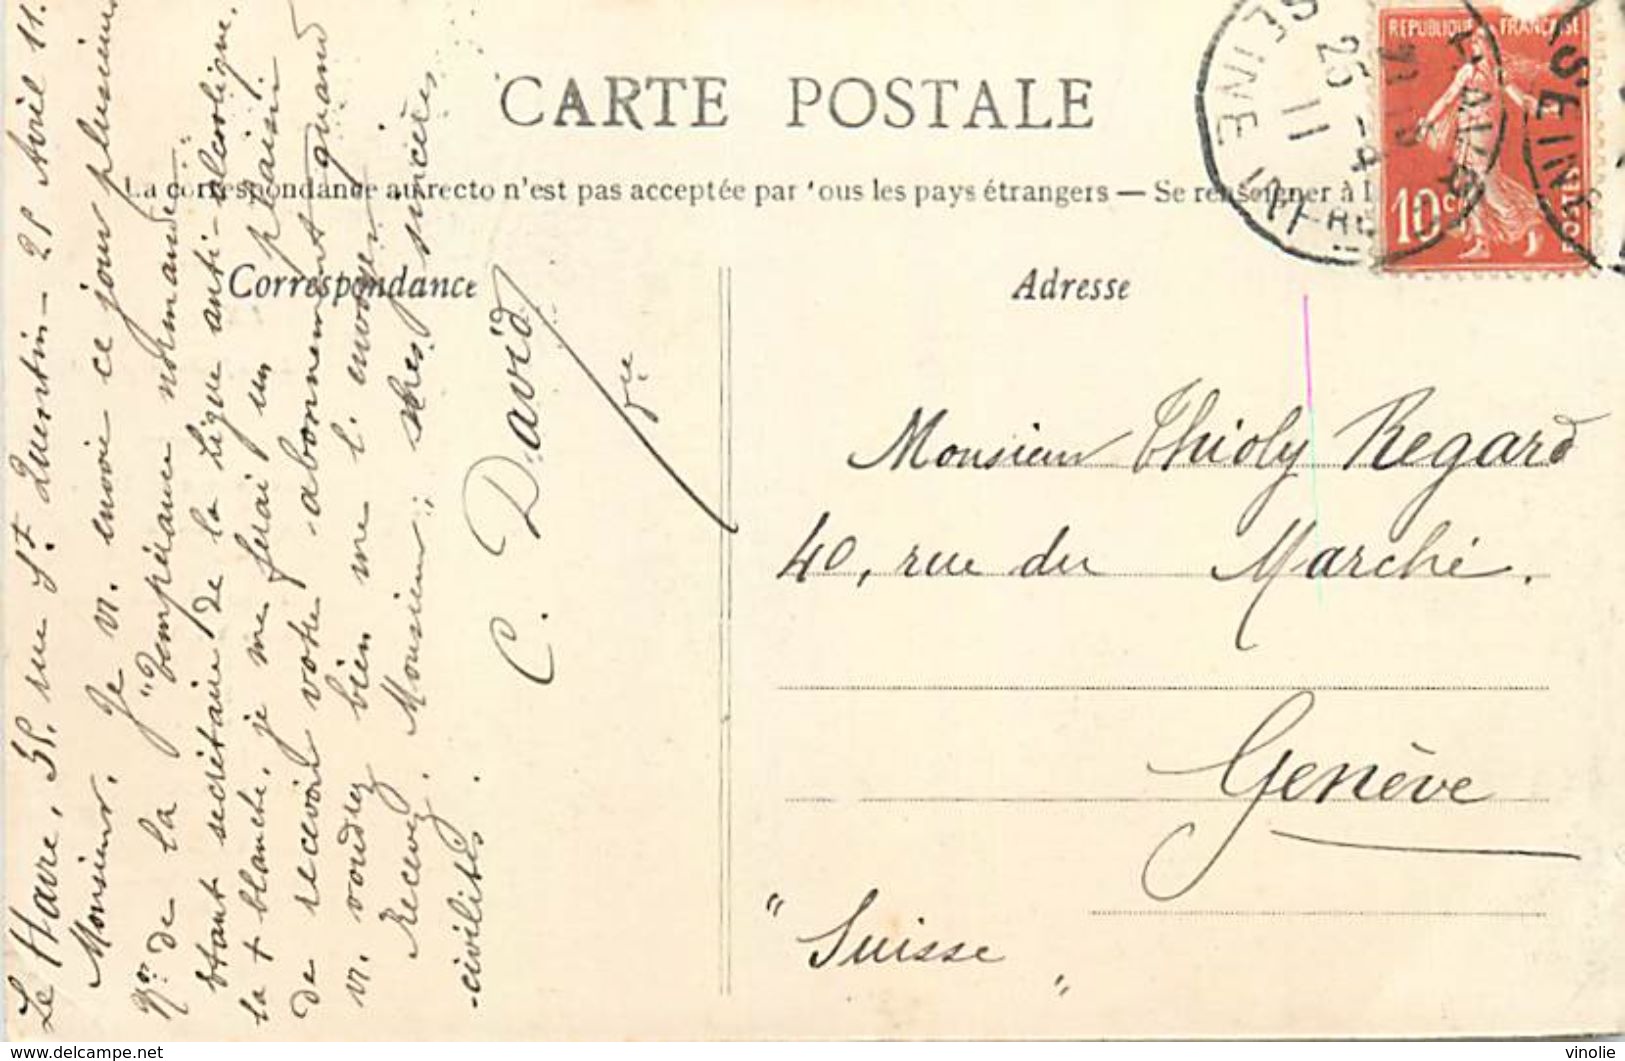 CARTE POSTALE
La correspondance au recto n'est pas acceptée par tous les pays étrangers — Se renseigner à
Correspondance
Adresse
REPUBLIQUE FRANÇAISE
10c
POSTES
LE HAVRE
25 - 4
11
SEINE INFRE
SEINE
Le Havre, 35. rue St. Quentin - 25 Avril 11.
Monsieur. Je v. envoie ce jour plusieurs
Nos de la "Tempérance normande".
Étant secrétaire de la Ligue anti-alcoolique.
la + blanche, je me ferai un plaisir
de recevoir votre abonnement quand
v. voudrez bien me l'envoyer
Recevez, Monsieur, mes sincères
civilités.
C. David
Monsieur Thioly Regard
40, rue du Marché.
Genève
"Suisse"
www.delcampe.net
vinolie